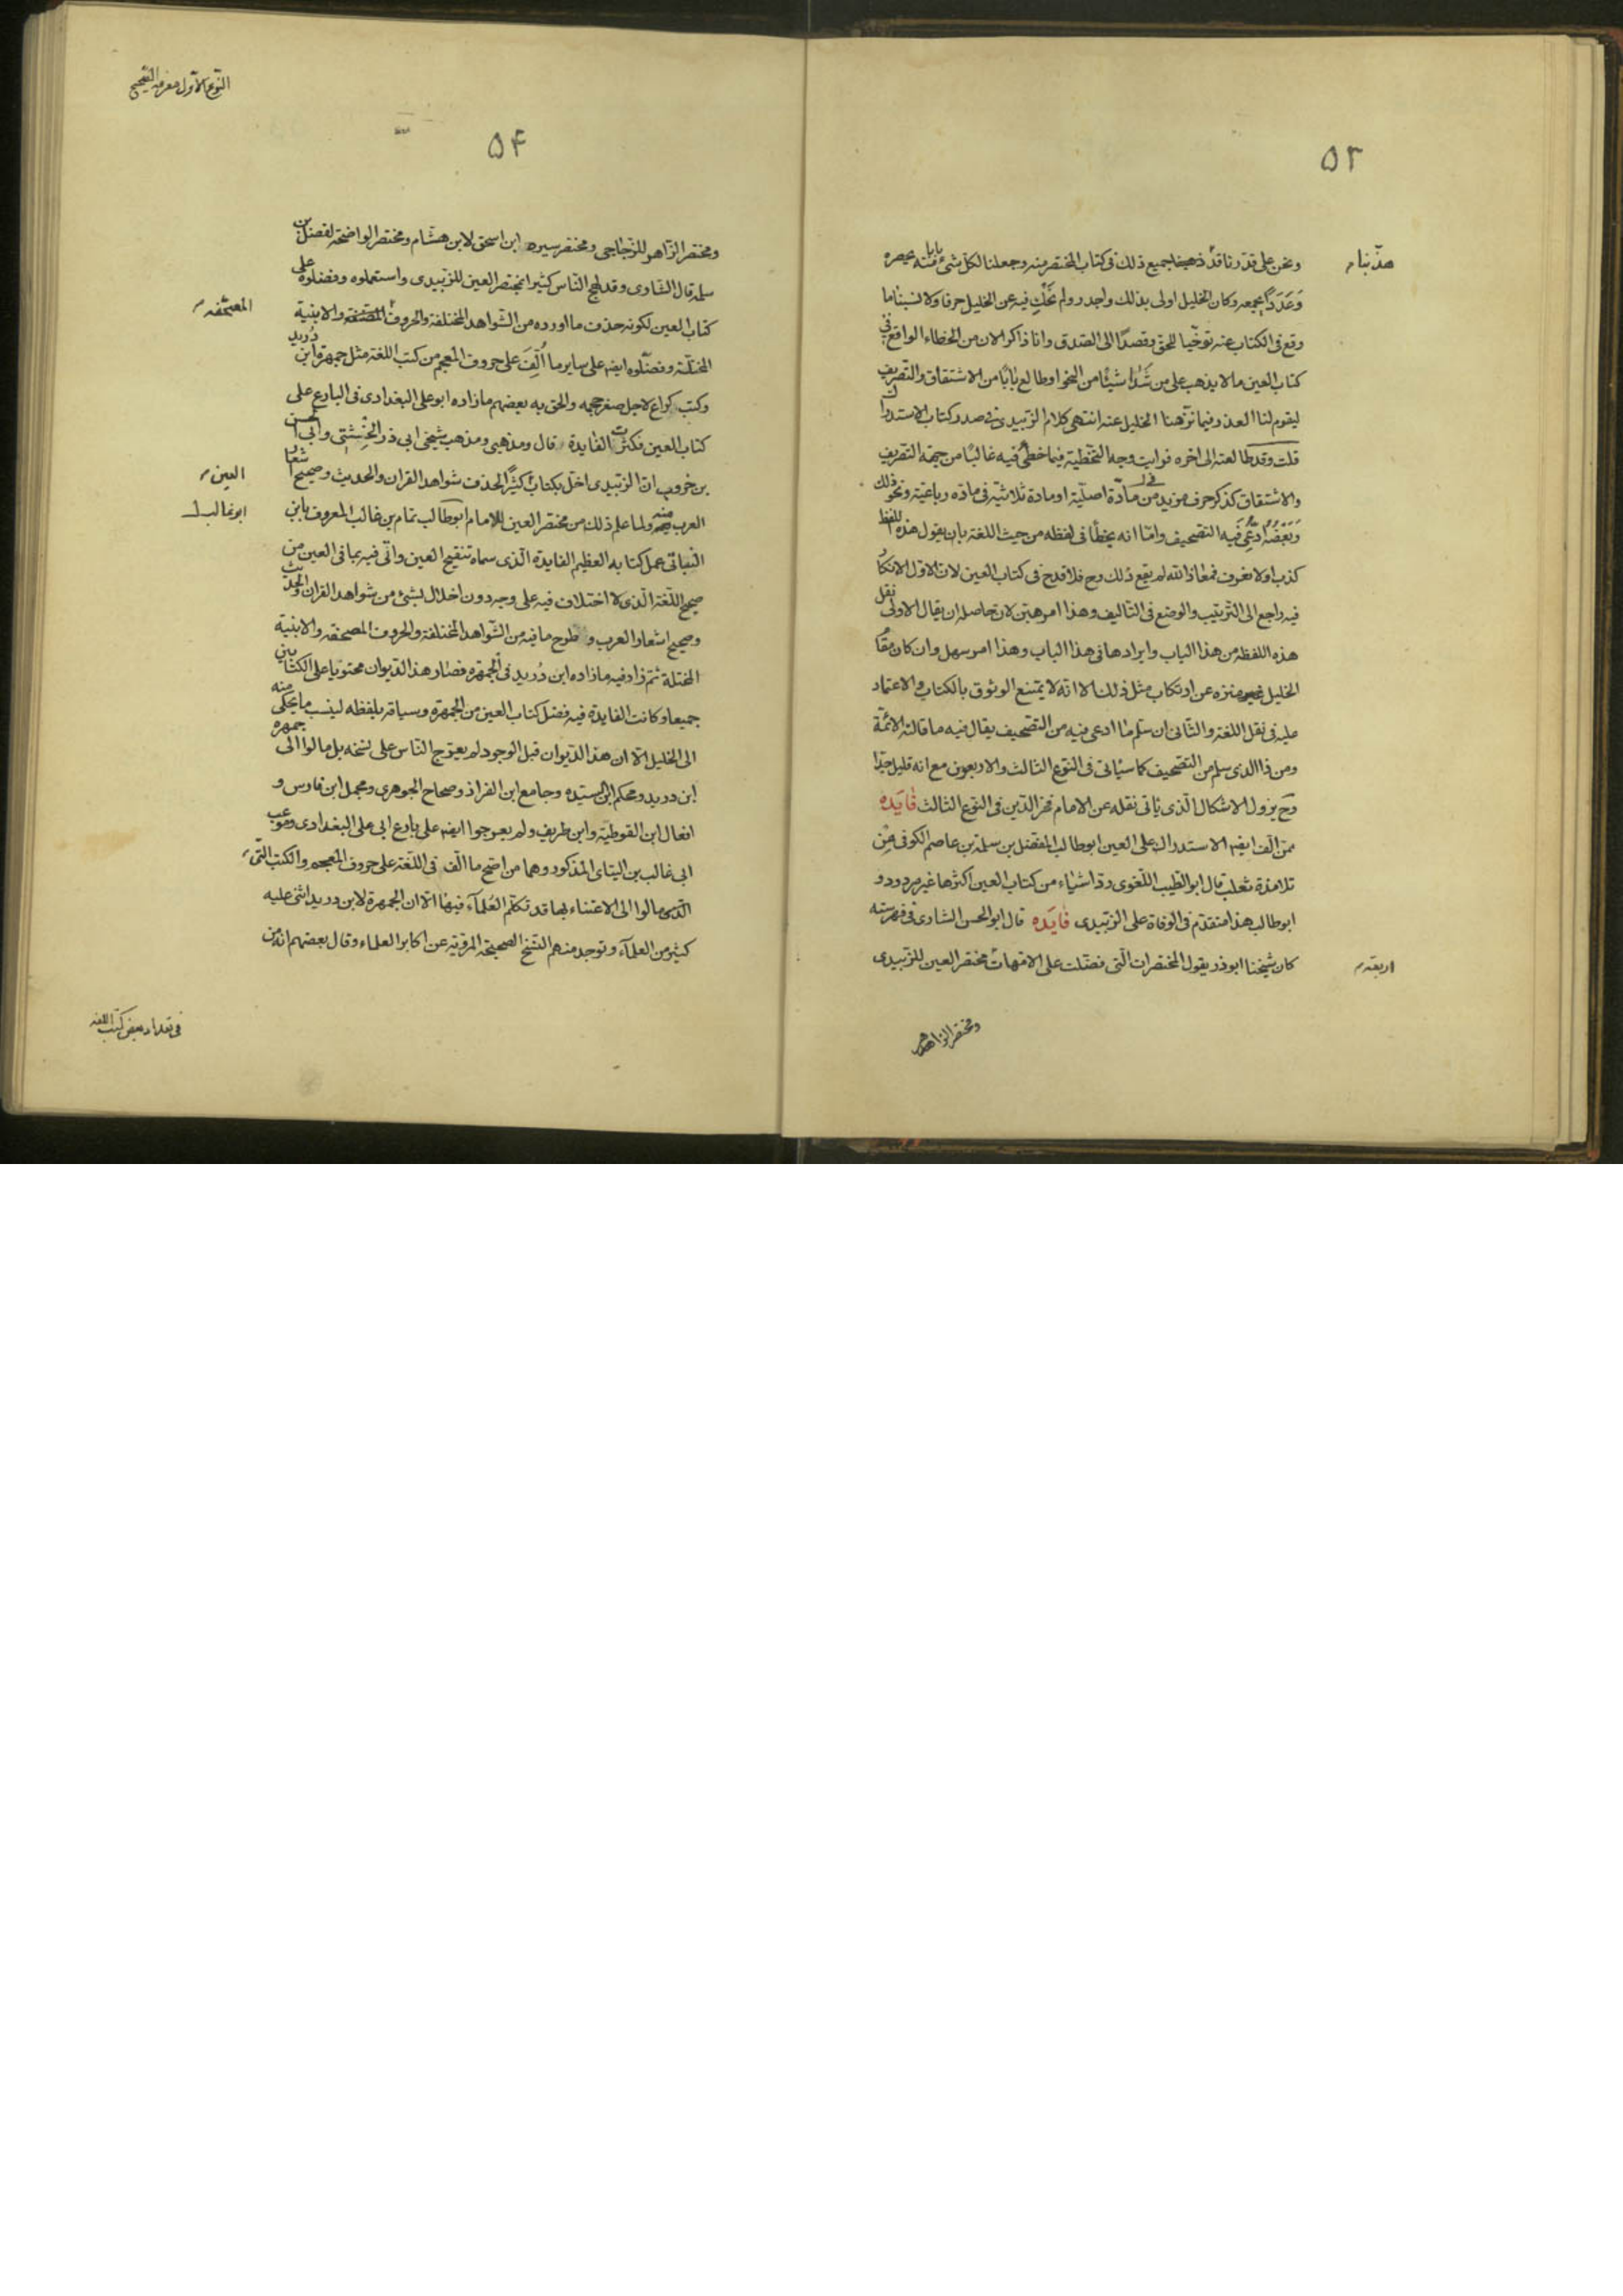 ٥٣
ونحن على قدرنا قد ذهبنا جميع ذلك فى كتاب المختصر منه وجعلنا لكل شئ منه بابا يحصره
هذّبنا
وَعَدَدًا يجمعه وكان الخليل اولى بذلك واجدر ولم نحك فيه عن الخليل حرفا ولا نسبنا ما
وقع فى الكتاب عنه توخّيا للحق وقصدًا الى الصّدق وانا ذاكر الان من الخطاء الواقع فى
كتاب العين ما لا يذهب على من شَدَا شيئًا من النحو او طالع بابًا من الاشتقاق والتصريف
ليقوم لنا العذر فيما نزّهنا الخليل عنه انتهى كلام الزبيدى فى صدر كتاب الاستدراك
قلت وقد طالعته الى اخره فرايت وجه التخطية فيما خطئ فيه غالبًا من جهة التصريف
والاشتقاق كذكر حرف مزيد فى مادّة اصليّة او مادة ثلاثيّة فى مادّه رباعيّه ونحو ذلك
وَبَعْضُهُ ادُّعِىَ فيه التصحيف وامّا انه يخطأ فى لفظه من حيث اللغة بان يقول هذه اللفظ
كذب او لا تعرف فمعاذ الله لم يقع ذلك وح فلا قدح فى كتاب العين لان الاوّل الانكار
فيه راجع الى الترتيب والوضع فى التاليف وهذا امر هيّن لان حاصله ان يقال الاولى نقل
هذه اللفظه من هذا الباب وايرادها فى هذا الباب وهذا امر سهل وان كان مقام
الخليل منزه عن ارتكاب مثل ذلك الا انّه لا يمنع الوثوق بالكتاب والاعتماد
عليه فى نقل اللغة والثّانى ان سلم ما ادعى فيه من التصحيف يقال فيه ما قالته الائمّة
ومن ذا الذى سلم من التصحيف كما سيأتى فى النّوع الثالث والاربعون مع انه قليل جدّا
وح يزول الاشكال الّذى ياتى نقله عن الامام فخر الدّين فى النّوع الثالث فٰايَده
ممّن الّف ايضه الاستدراك على العين ابو طالب المفضل بن سلمة بن عاصم الكوفى من
تلامذة ثعلب قال ابو الطيب اللّغوى ردّ اشياء من كتاب العين اكثرها غير مردود و
ابو طالب هذا متقدّم فى الوفاة على الزبيدى فٰايَده قال ابو الحسن الشارى فى فهرسته
كان شيخنا ابو ذر يقول المختصرات الّتى فضّلت على الامهات مختصر العين للزبيدى
اربعة
ومختصر الزاهر
النّوع الاوّل معرفه الصّحيح
٥٤
ومختصر الزّاهر للزّجّاجى ومختصر سيره ابن اسحق لابن هشام ومختصر الواضحة لفضل بن
سلمه قال الشارى وقد لهج النّاس كثيرا بمختصر العين للزّبيدى واستعملوه وفضلوه على
كتاب العين لكونه حذف ما اورده من الشّواهد المختلفة والحروف المصنفه والابنية
المصحّفه
المختلّة وفضّلوه ايضه على ساير ما اُلّفَ على حروف المعجم من كتب اللغة مثل جمهرة ابن دُرَيد
وكتب كراع لاجل صغر حجمه والحق به بعضهم ما زاده ابو على البغدادى فى البارع على
كتاب العين فكثرت الفايدة قال ومذهبى ومذهب شيخى ابى ذر الخشنى وابى الحسن
بن خروف ان الزبيدى اخل بكتاب كثيرًا لحذف شواهد القران والحديث وصحيح اشعار
العين
العرب منه ولما علم ذلك من مختصر العين الامام ابو طالب تمام بن غالب المعروف بابن
ابو غالب
التّيانى عمل كتابه العظيم الفايدة الّذى سماه تنقيح العين واتى فيه بما فى العين من
صحيح اللّغة الّذى لا اختلاف فيه على وجهه دون اخلال بشئ من شواهد القران والحديث
وصحيح اشعار العرب وطرح ما فيه من الشّواهد المختلفة والحروف المصحفه والابنية
المختلة ثم زاد فيه ما زاده ابن دُريد فى الجمهره فصار هذا الدّيوان محتويا على الكتابين
جميعا وكانت الفايدة فيه فصل كتاب العين من الجمهرة وسياقه بلفظه لينسب ما يحكى منه
الى الخليل الّا ان هذا الدّيوان قبل الوجود لم يعرّج النّاس على نسخه بل مالوا الى جمهره
ابن دريد ومحكم ابن سيّده وجامع ابن القزاز وصحاح الجوهرى ومجمل ابن فارس و
افعال ابن القوطيّة وابن طريف ولم يعرجوا ايضه على بارع ابى على البغدادى وموعب
ابى غالب بن التيانى المذكور وهما من اصح ما الّف فى اللّغة على حروف المعجم والكتب الّتى
مالوا الى الاعتناء بها قد تكلّم العُلمآء فيها الّا ان الجمهرة لابن دريد اثنى عليه
كثير من العلمآء وتوجد منه النّسخ الصحيحة المرويّة عن اكابر العلماء وقال بعضهم انه من
فى تعداد بعض كتب اللغه